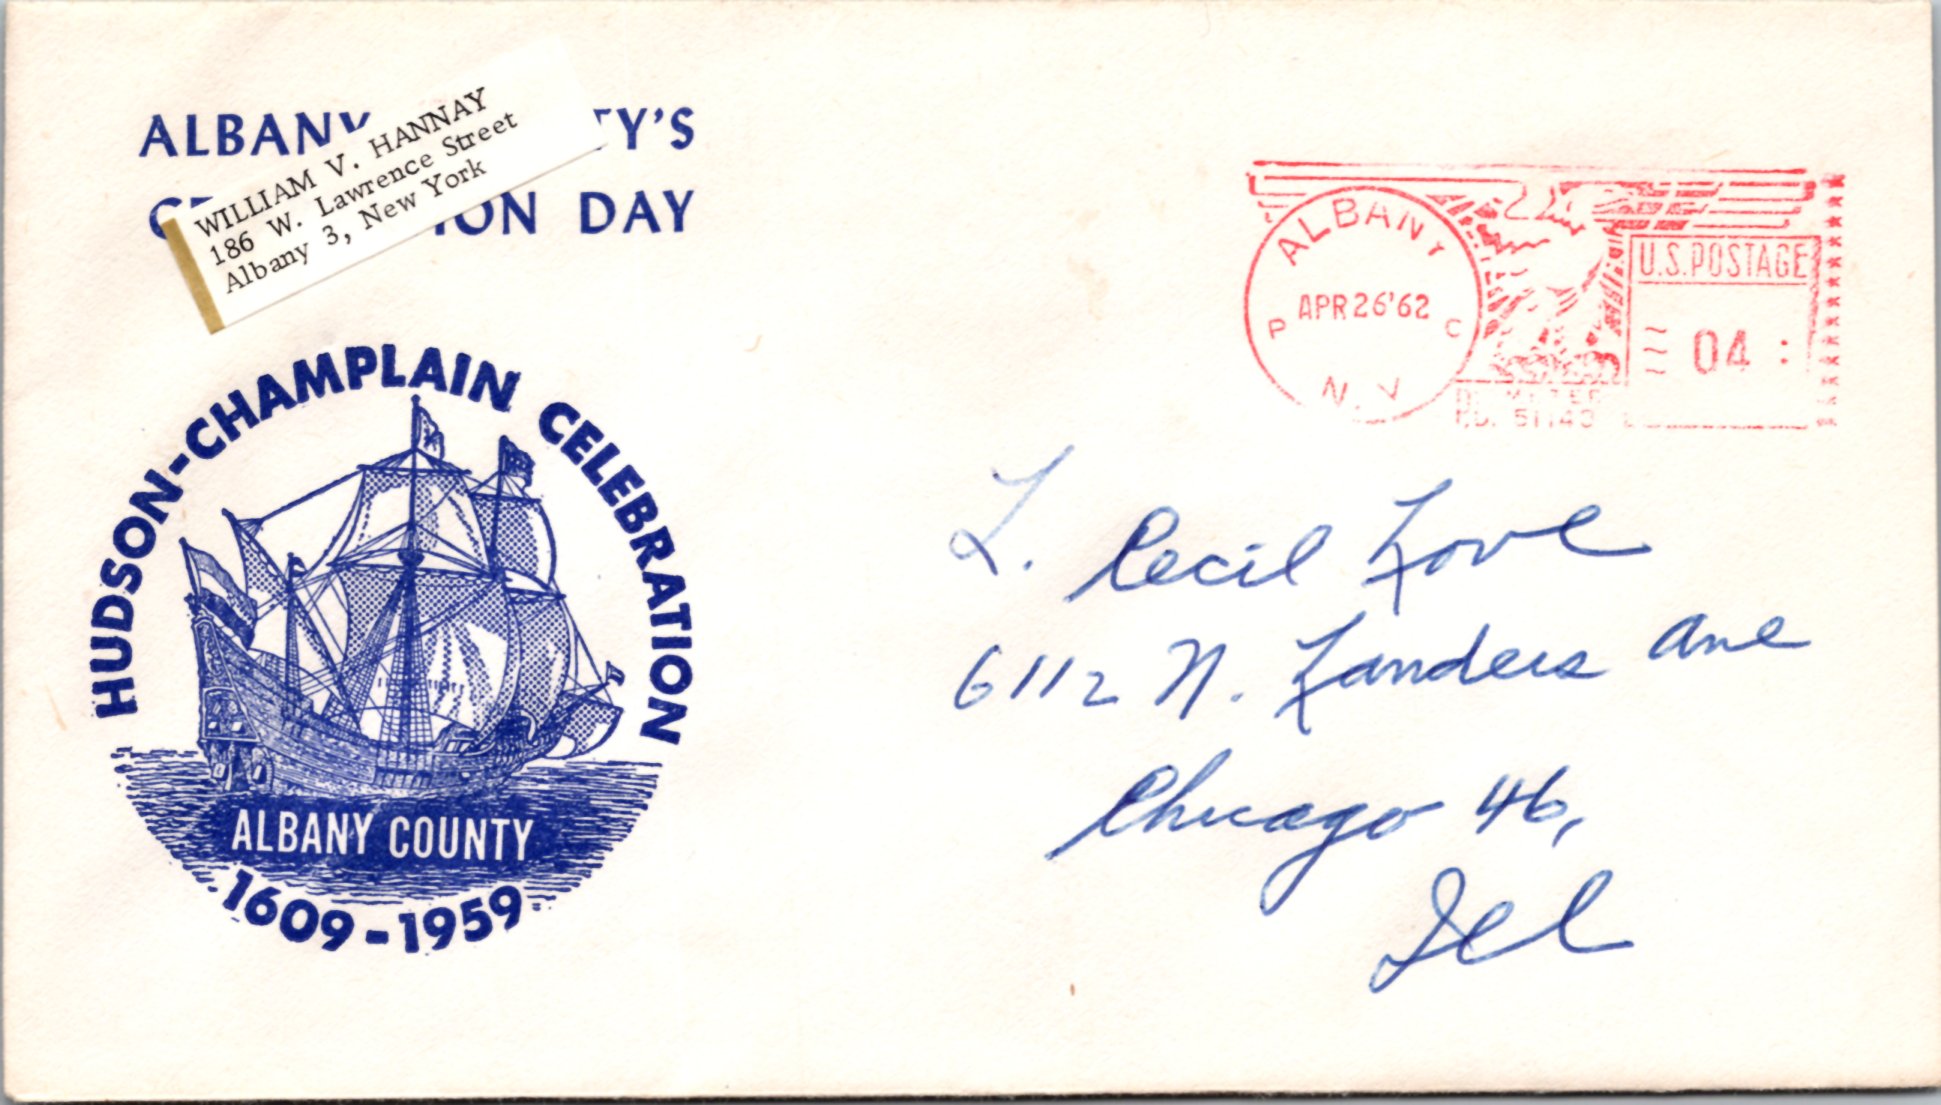 ALBANY TY'S
ION DAY
WILLIAM V. HANNAY
186 W. Lawrence Street
Albany 3, New York
HUDSON-CHAMPLAIN CELEBRATION
ALBANY COUNTY
1609-1959
ALBANY
P APR 26'62 C
N.Y
U.S. POSTAGE
04
METER
51143
L. Cecil Love
6112 N. Landers Ave
Chicago 46,
Ill